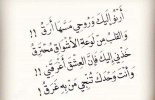 أرنو إليك وروحي مسها أرق !!
والقلب من لوعة الأشواق محترق
خذني إليك فإن العشق أغرقني !!
وأنت وحدك تنجي من به غرق !